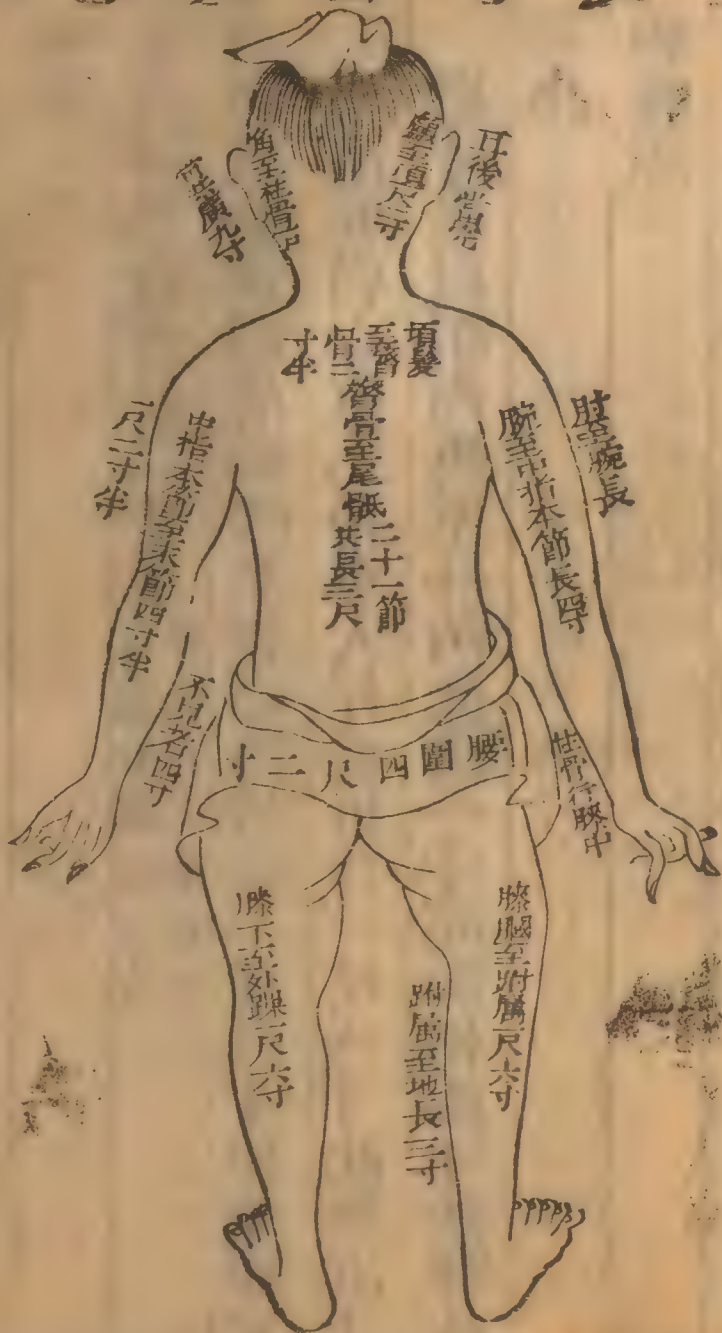 耳後當完
骨者廣九寸
顱至項尺二寸
角至柱骨一尺
項髮
至膂
骨二
寸半
膂骨至尾骶
二十一節
共長三尺
肘至腕長
一尺二寸半
腕至中指本節長四寸
中指本節至末節四寸半
柱骨行腋中
不見者四寸
腰圍四尺二寸
膝膕至跗屬一尺六寸
跗屬至地長三寸
膝下至外踝一尺六寸